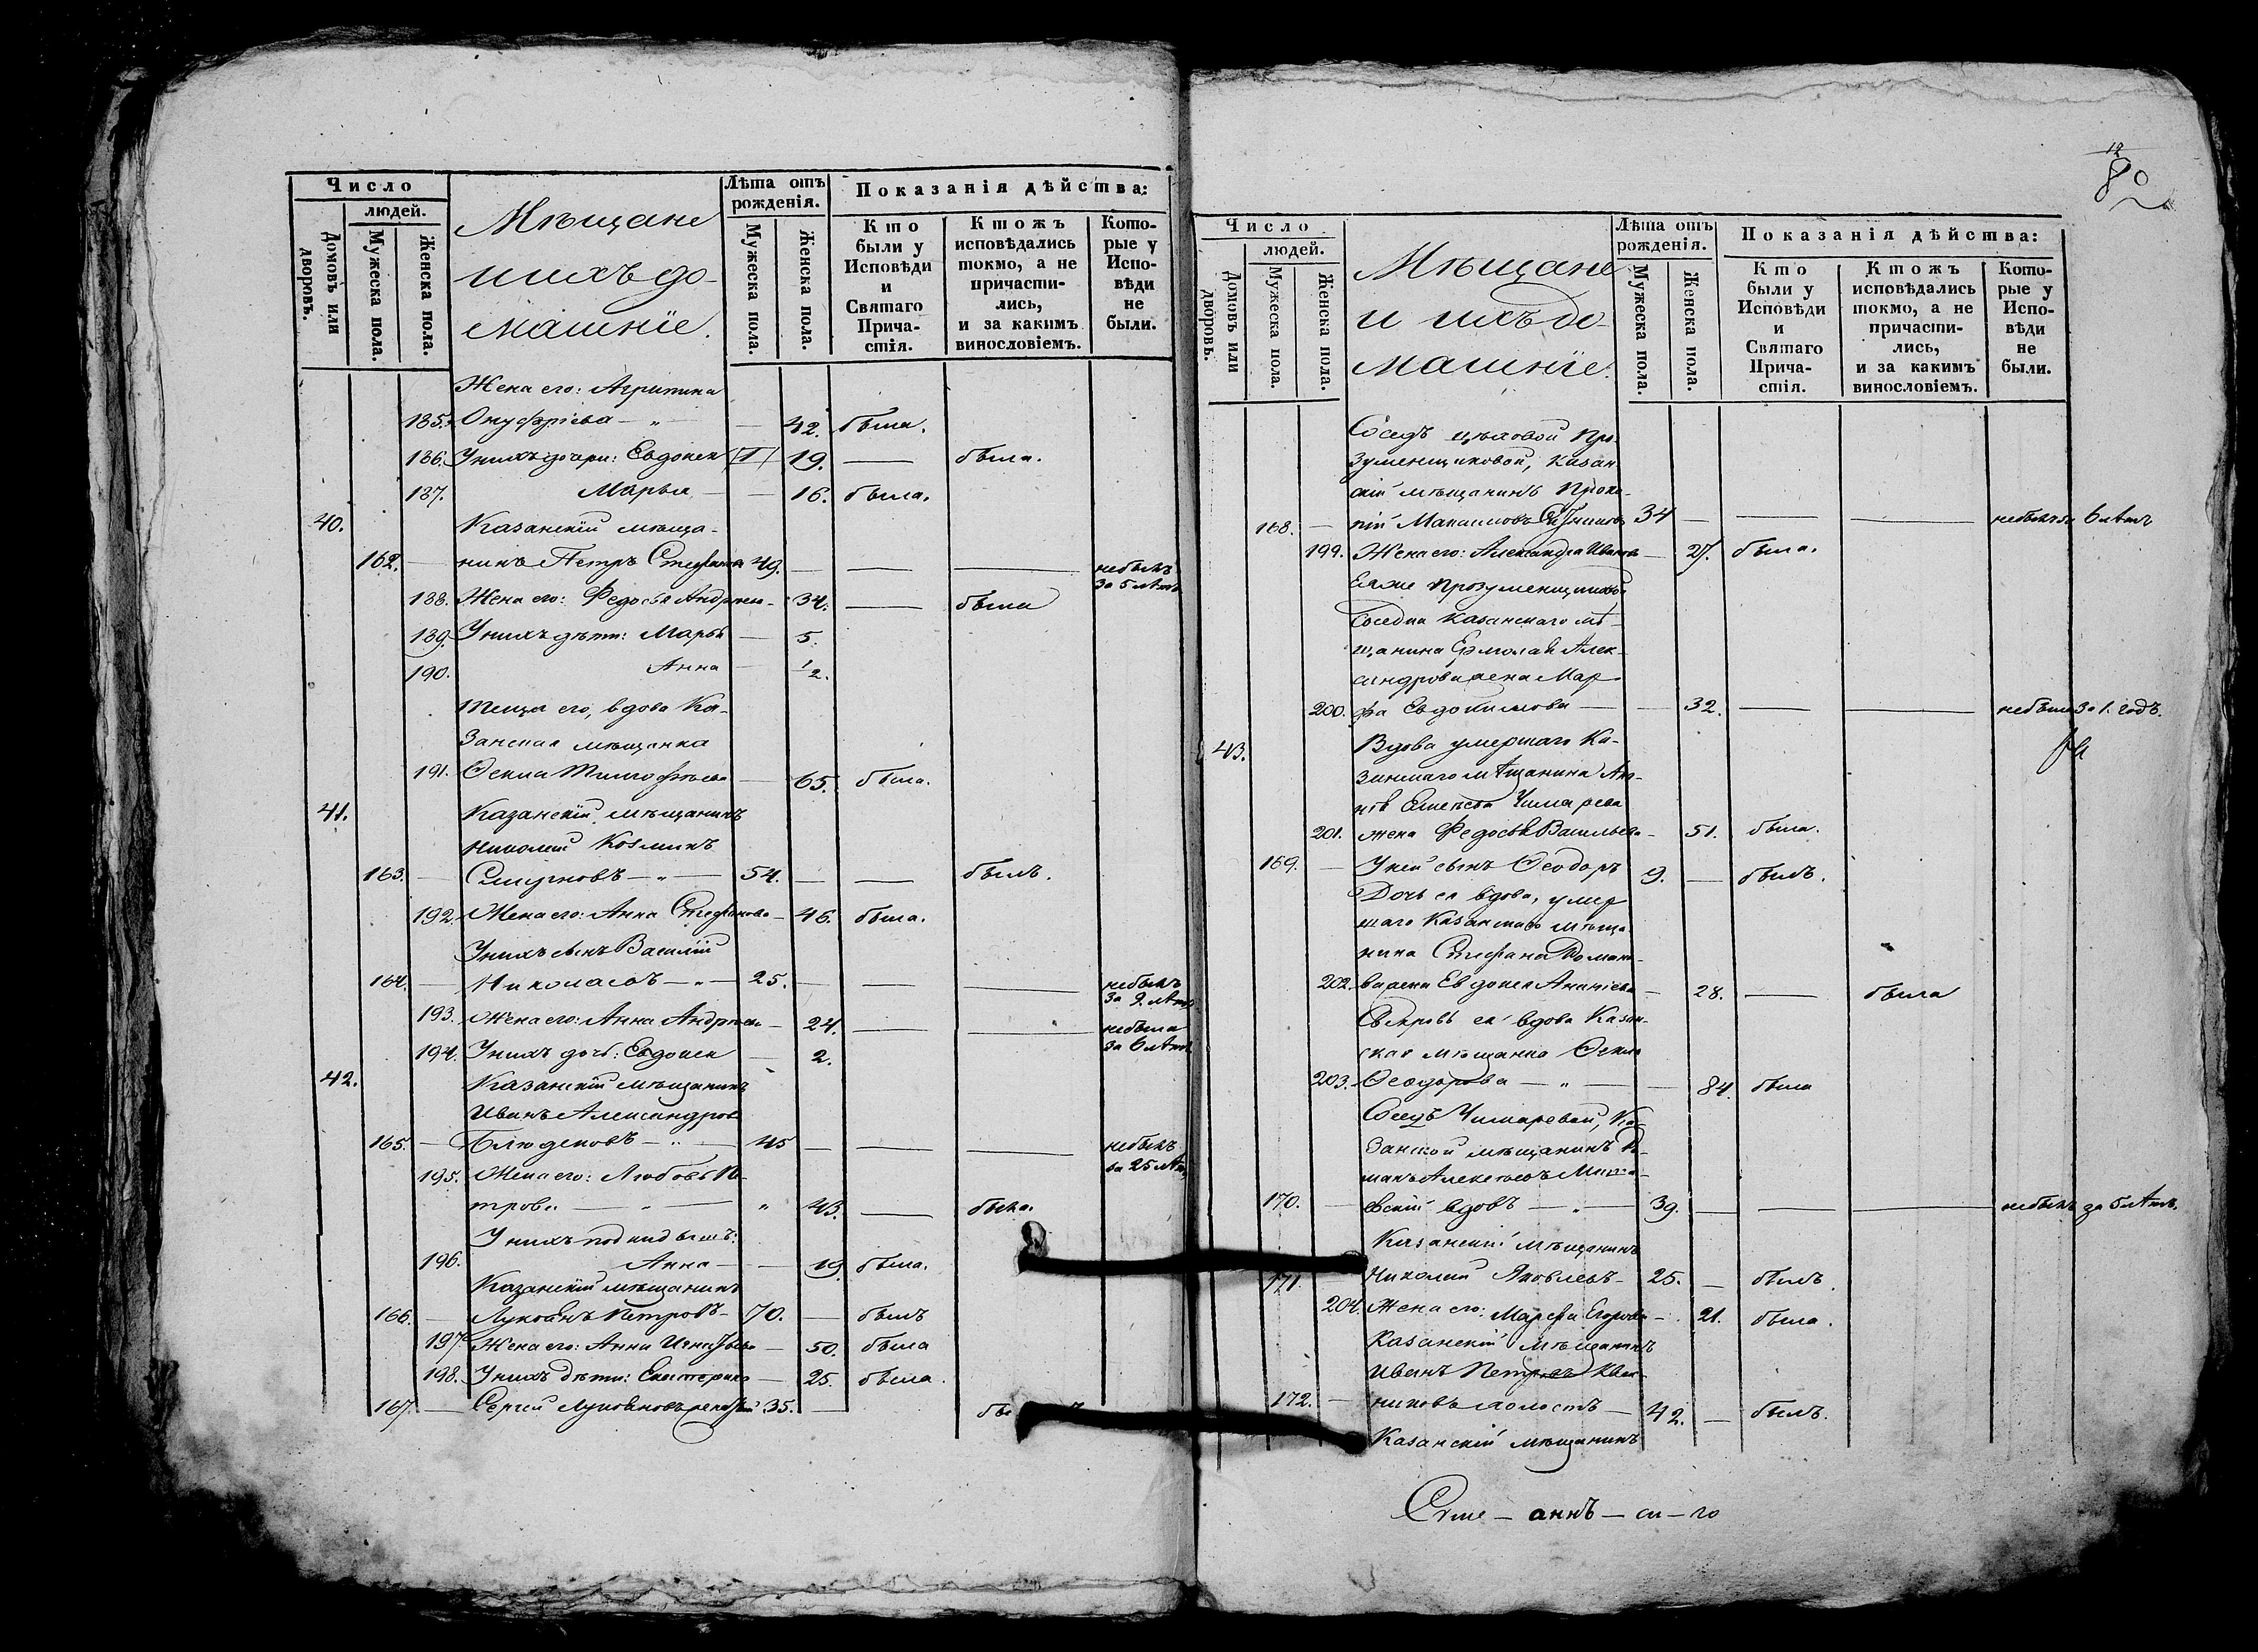 Число
людей.
Домовъ или дворовъ.
Мужеска пола.
Женска пола.
Мѣщане
и ихъ до-
машніе.
Лѣта отъ
рожденія.
Мужеска пола.
Женска пола.
Показанія дѣйства:
Кто
были у
Исповѣди
и
Святаго
Прича-
стія.
Ктожъ
исповѣдались
токмо, а не
причасти-
лись,
и за какимъ
винословіемъ.
Кото-
рые у
Испо-
вѣди
не
были.
Жена его: Агрипина
185. Онуфріева — „ — — 42. была.
186. У нихъ дочери: Евдокея 19. — была.
187. Марья — — 16. была.
40. Казанскій мѣща-
162. — нинъ Петръ Стефановъ 49. — — — небылъ
за 5 лѣтъ
188. Жена его: Федосья Андреева — 34. — была
189. У нихъ дѣти: Марья — 5.
190. Анна — 1/2.
Теща его, вдова Ка-
занская мѣщанка
191. Оекла Тимофѣева — 65. была.
41. Казанскій мѣщанинъ
Николай Козминъ
163. — Смирновъ — „ — 54. — — былъ.
192. Жена его: Анна Стефанова — 46. была.
У нихъ сынъ Василій
164. — Николаевъ — „ — 25. — — — небылъ
за 9 лѣтъ
193. Жена его: Анна Андреева — 24. — — небыла
за 6 лѣтъ
194. У нихъ дочь: Евдокея — 2.
42. Казанскій мѣщанинъ
Иванъ Александровъ
165. — Блюденовъ — „ — 45 — — — небылъ
за 25 лѣтъ
195. Жена его: Любовь Пе-
трова — „ — „ 43. — была.
У нихъ подкидышъ:
196. Анна — — 19. была.
Казанскій мѣщанинъ
166. — Лукоянъ Петровъ — 70. — былъ
197. Жена его: Анна Игнатьева — 50. была
198. У нихъ дѣти: Екатерина — 25. была.
167. — Сергей Лукояновъ 35. —
12
80
Число
людей.
Домовъ или дворовъ.
Мужеска пола.
Женска пола.
Мѣщане
и ихъ до-
машніе.
Лѣта отъ
рожденія.
Мужеска пола.
Женска пола.
Показанія дѣйства:
Кто
были у
Исповѣди
и
Святаго
Прича-
стія.
Ктожъ
исповѣдались
токмо, а не
причасти-
лись,
и за какимъ
винословіемъ.
Кото-
рые у
Испо-
вѣди
не
были.
Соседъ цѣховой Про-
зуменщиковой, Казан-
скій мѣщанинъ Проко-
168. — пій Максимовъ 34 — — — небылъ за 6 лѣтъ
199. Жена его: Александра Иванова — 27. была.
Еяже Прозуменщиковой
соседка Казанскаго мѣ-
щанина Ермолая Алек-
сандрова жена Мар-
200. фа Евдокимова — — 32. — — небыла за 1. годъ.
43. Вдова умершаго Ка-
занскаго мѣщанина Ана-
нія Елисѣева Чимарева
201. жена Федосья Васильева — 51. была.
169. — У ней сынъ Ѳеодоръ 9. — былъ.
Дочь ея вдова, умер-
шаго Казанскаго мѣща-
нина Стефана Романо-
202. ва жена Евдокея Ананіева — 28. — была
Свекровь ея вдова Казан-
ская мѣщанка Оекла
203. Ѳеодорова — „ — — 84. была
Соседъ Чимаревой, Ка-
занской мѣщанинъ Ро-
манъ Алексѣевъ
170. — евскій вдовъ — „ — 39. — — — небылъ за 5 лѣтъ.
Казанскій мѣщанинъ
171. — Николай Яковлевъ — 25. — былъ.
204. Жена его: Марфа Егорова — 21. была.
Казанскій мѣщанинъ
Иванъ Петровъ Квас-
172. — никовъ холостъ — 42. — былъ.
Казанскій мѣщанинъ